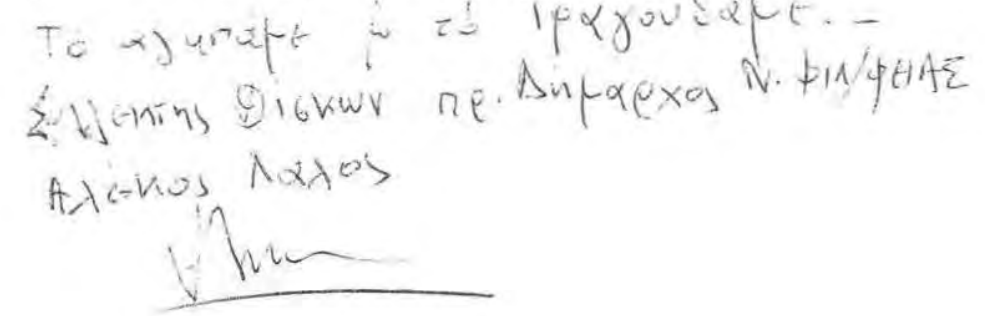 Το αγαπάμε & το τραγουδάμε. –
Συλλέκτης Δίσκων πρ. Δήμαρχος Ν. ΦΙΛ/ΦΕΙΑΣ
Αλέκος Λάλος